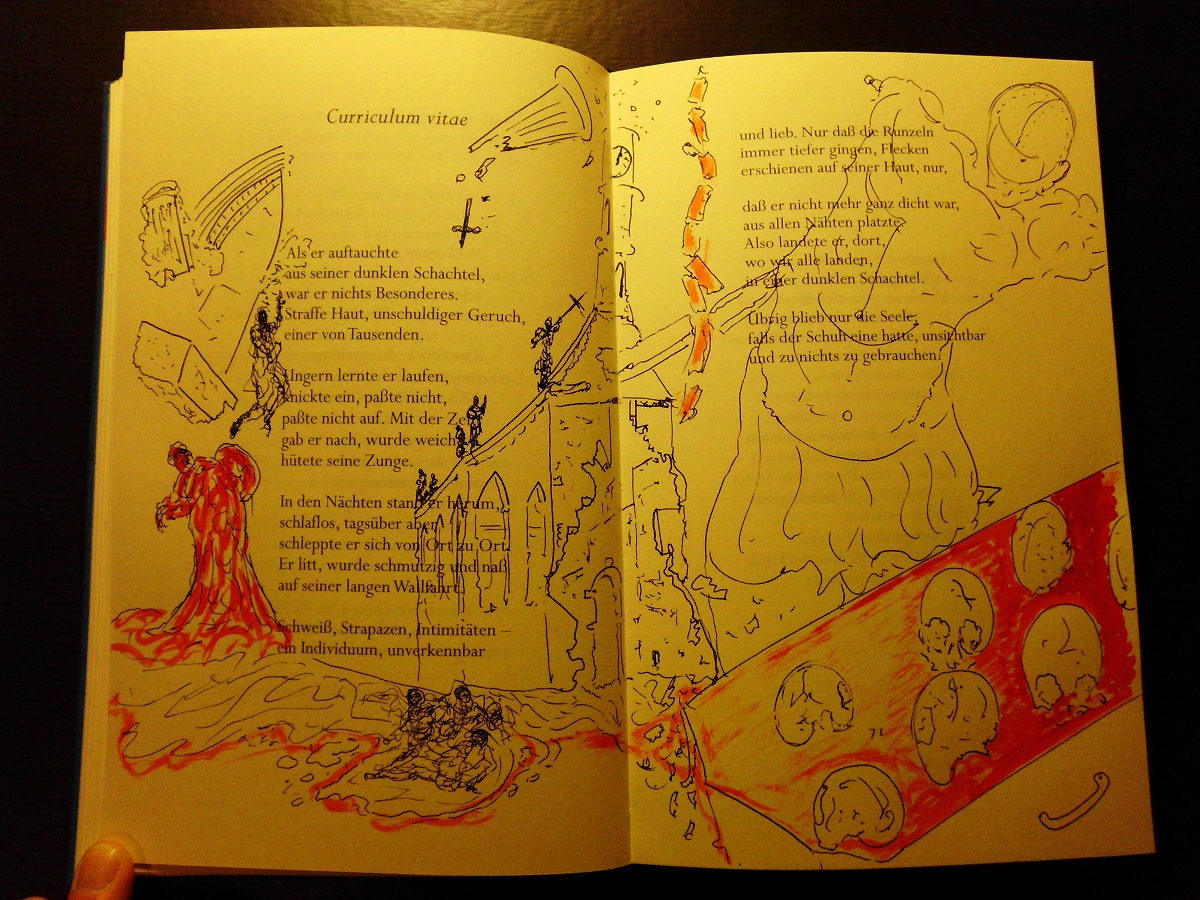 Curriculum vitae
Als er auftauchte
aus seiner dunklen Schachtel,
war er nichts Besonderes.
Straffe Haut, unschuldiger Geruch,
einer von Tausenden.
Ungern lernte er laufen,
knickte ein, paßte nicht,
paßte nicht auf. Mit der Zeit
gab er nach, wurde weich,
hütete seine Zunge.
In den Nächten stand er herum,
schlaflos, tagsüber aber
schleppte er sich von Ort zu Ort.
Er litt, wurde schmutzig und naß
auf seiner langen Wallfahrt.
Schweiß, Strapazen, Intimitäten –
ein Individuum, unverkennbar
und lieb. Nur daß die Runzeln
immer tiefer gingen, Flecken
erschienen auf seiner Haut, nur,
daß er nicht mehr ganz dicht war,
aus allen Nähten platzte.
Also landete er, dort,
wo wir alle landen,
in einer dunklen Schachtel.
Übrig blieb nur die Seele,
falls der Schuh eine hatte, unsichtbar
und zu nichts zu gebrauchen.
71